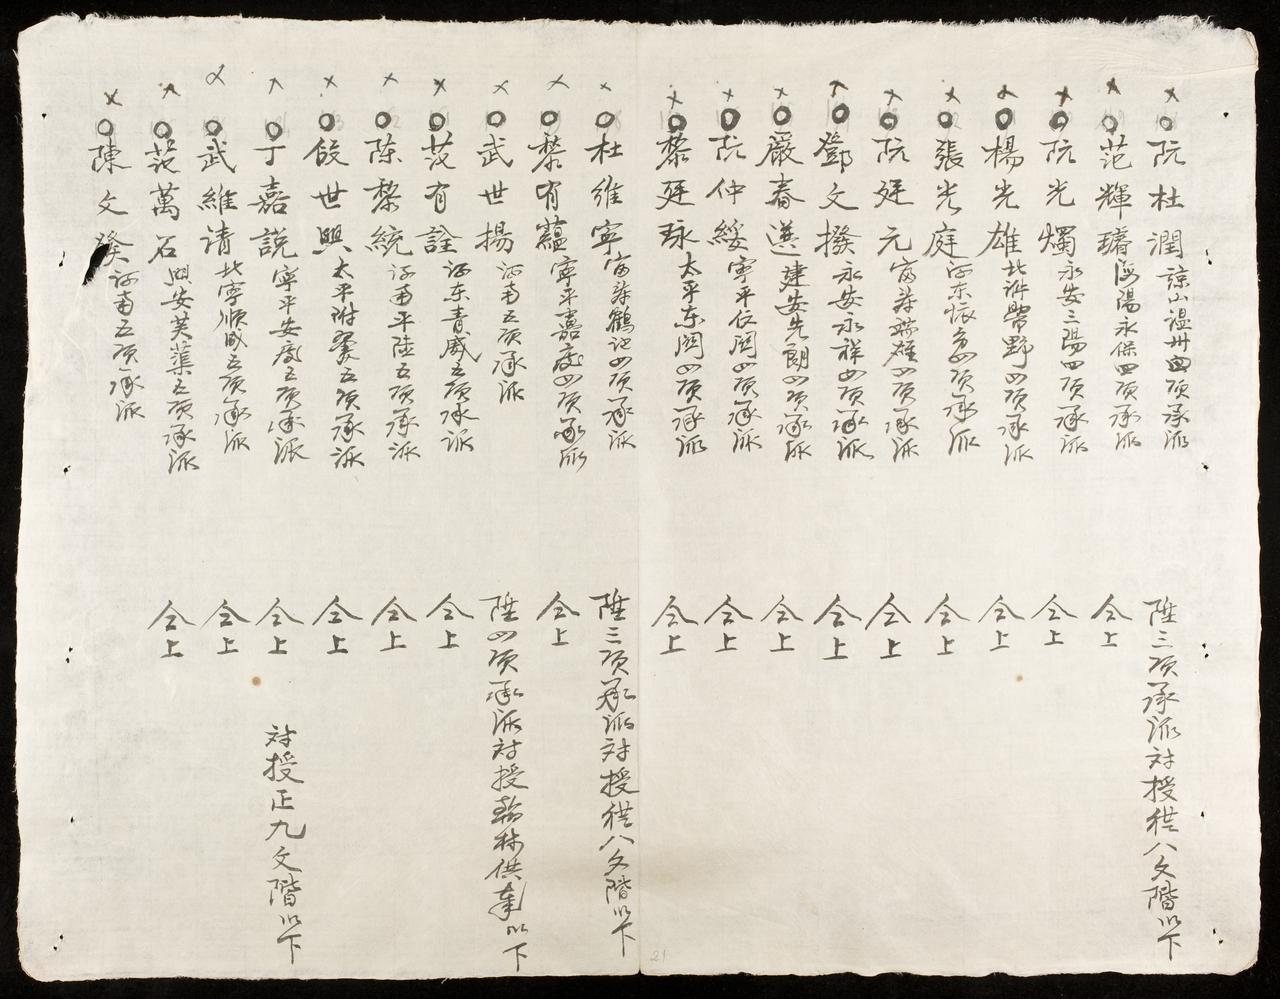 阮杜潤 諒山温州四项承派 陞三项承派対授從八文階以下
范輝璿 海陽永保四项承派 仝上
阮光燭 永安三陽四项承派 仝上
楊光雄 北許帶野四项承派 仝上
張光庭 河东懷 四项承派 仝上
阮廷元 富寿端雄四项承派 仝上
鄧文撥 永安永祥四项承派 仝上
嚴春選 建安先朗四项承派 仝上
阮仲綏 寧平 関四项承派 仝上
黎廷詠 太平东関四项承派 仝上
杜維寧 富寿鶴池四项承派 陞三项承派対授從八文階以下
黎有蘊 寧平嘉慶四项承派 仝上
武世揚 河南五项承派 陞四项承派対授翰林供奉以下
范有詮 河东青威五项承派 仝上
陈黎統 河南平陸五项承派 仝上
段世興 太平附翼五项承派 仝上
丁嘉説 寧平安慶五项承派 仝上 対授正九文階以下
武維清 北寧順成五项承派 仝上
范萬石 興安芙蕖五项承派 仝上
陳文癸 河南五项承派
21